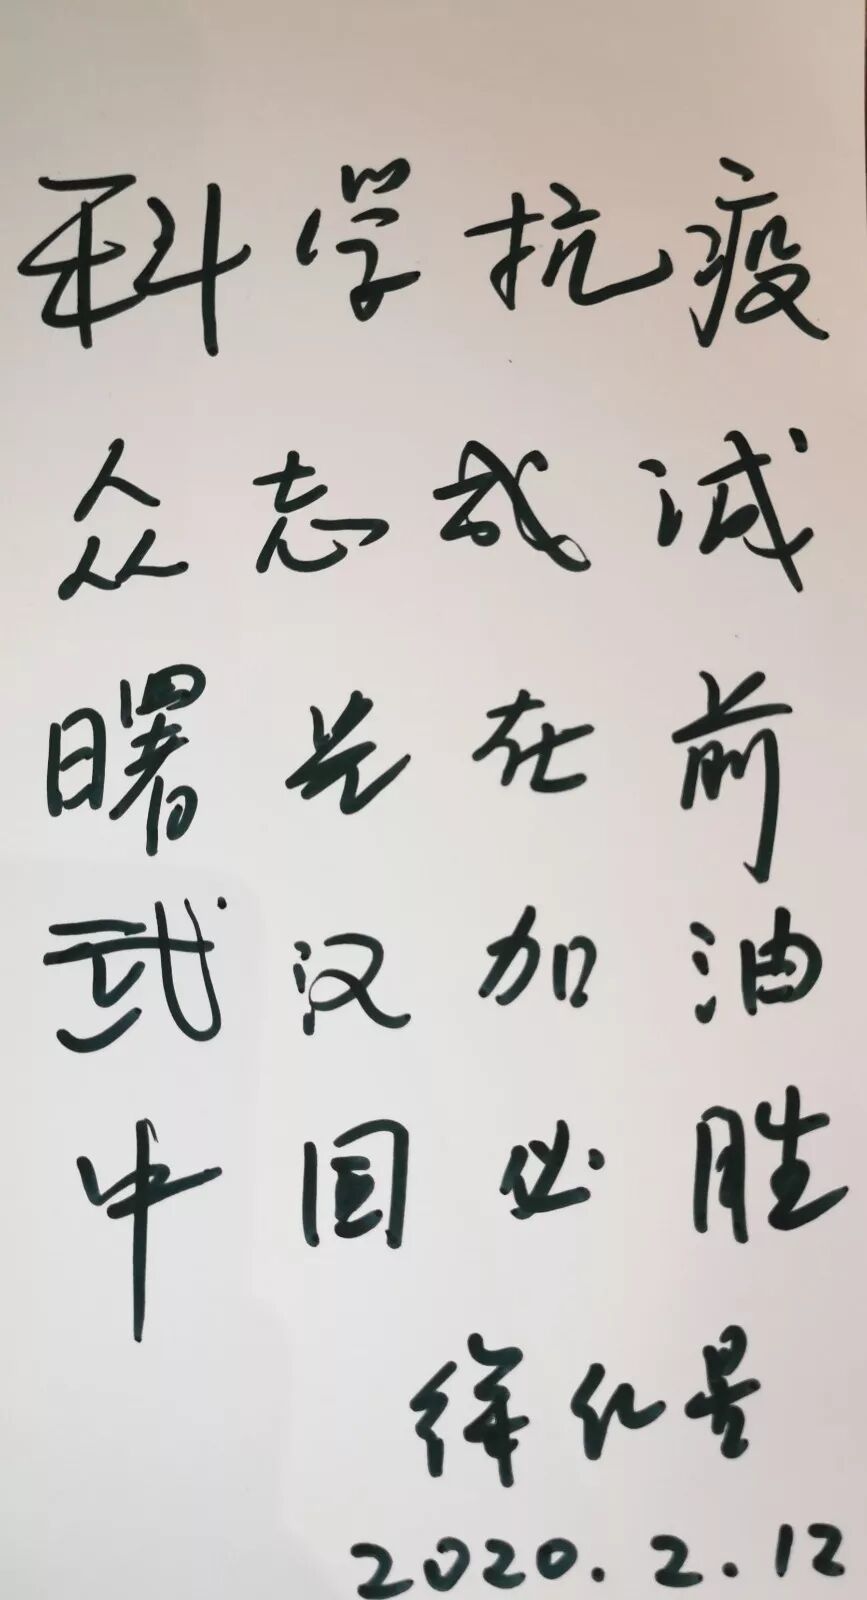 科学抗疫
众志成城
曙光在前
武汉加油
中国必胜
2020.2.12